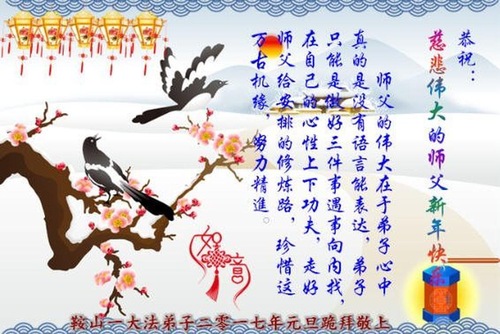 恭祝：
慈悲伟大的师父新年快乐
师父的伟大在于弟子心中
真的是没有语言能表达，弟子
只能是做好三件事遇事向内找，
在自己的心性上下功夫，走好
师父给安排的修炼路，珍惜这
万古机缘，努力精進。
鞍山一大法弟子二零一七年元旦跪拜敬上